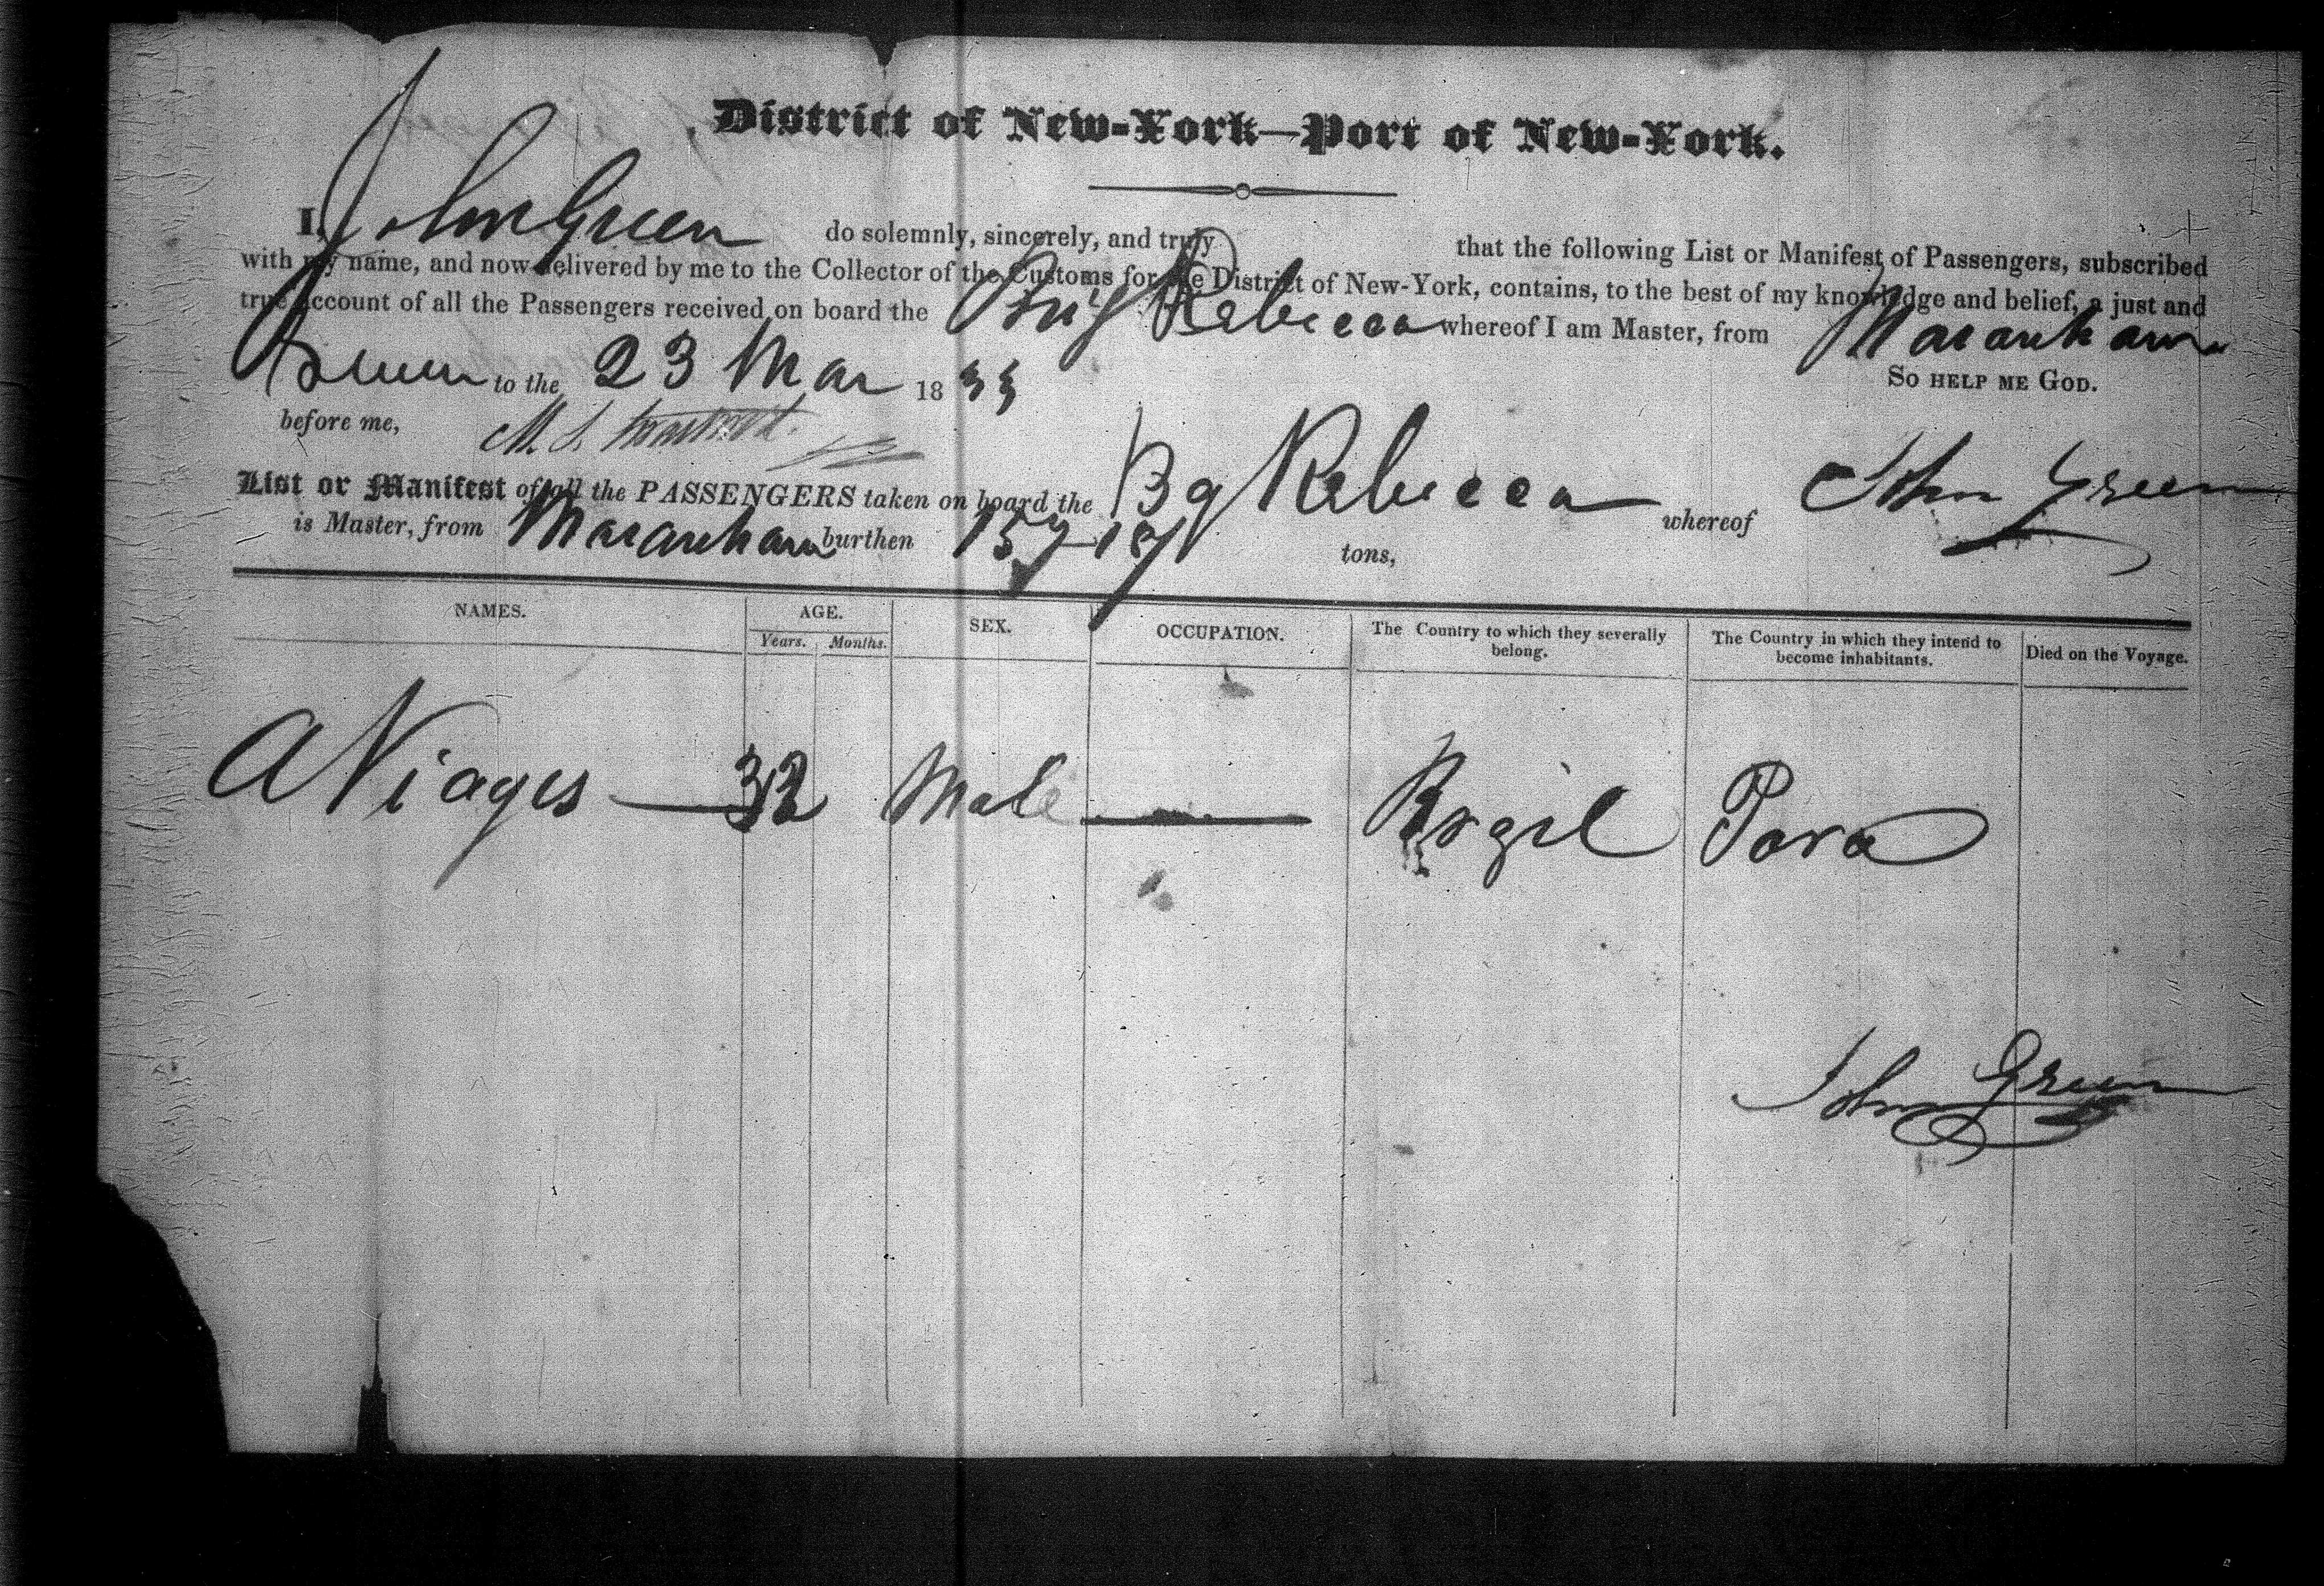 District of New-York—Port of New-York.
I, John Green do solemnly, sincerely, and truly that the following List or Manifest of Passengers, subscribed
with my name, and now delivered by me to the Collector of the Customs for the District of New-York, contains, to the best of my knowledge and belief, a just and
true account of all the Passengers received on board the Brig Rebecca whereof I am Master, from Maranham
Sworn to the 23 Mar 1833 So help me God.
before me, M. S.
List or Manifest of all the PASSENGERS taken on board the Bg Rebecca whereof John Green
is Master, from Maranham burthen tons,
NAMES. AGE. SEX. OCCUPATION. The Country to which they severally belong. The Country in which they intend to become inhabitants. Died on the Voyage.
Years. Months.
A Viages — 32 Male — Para
John Green